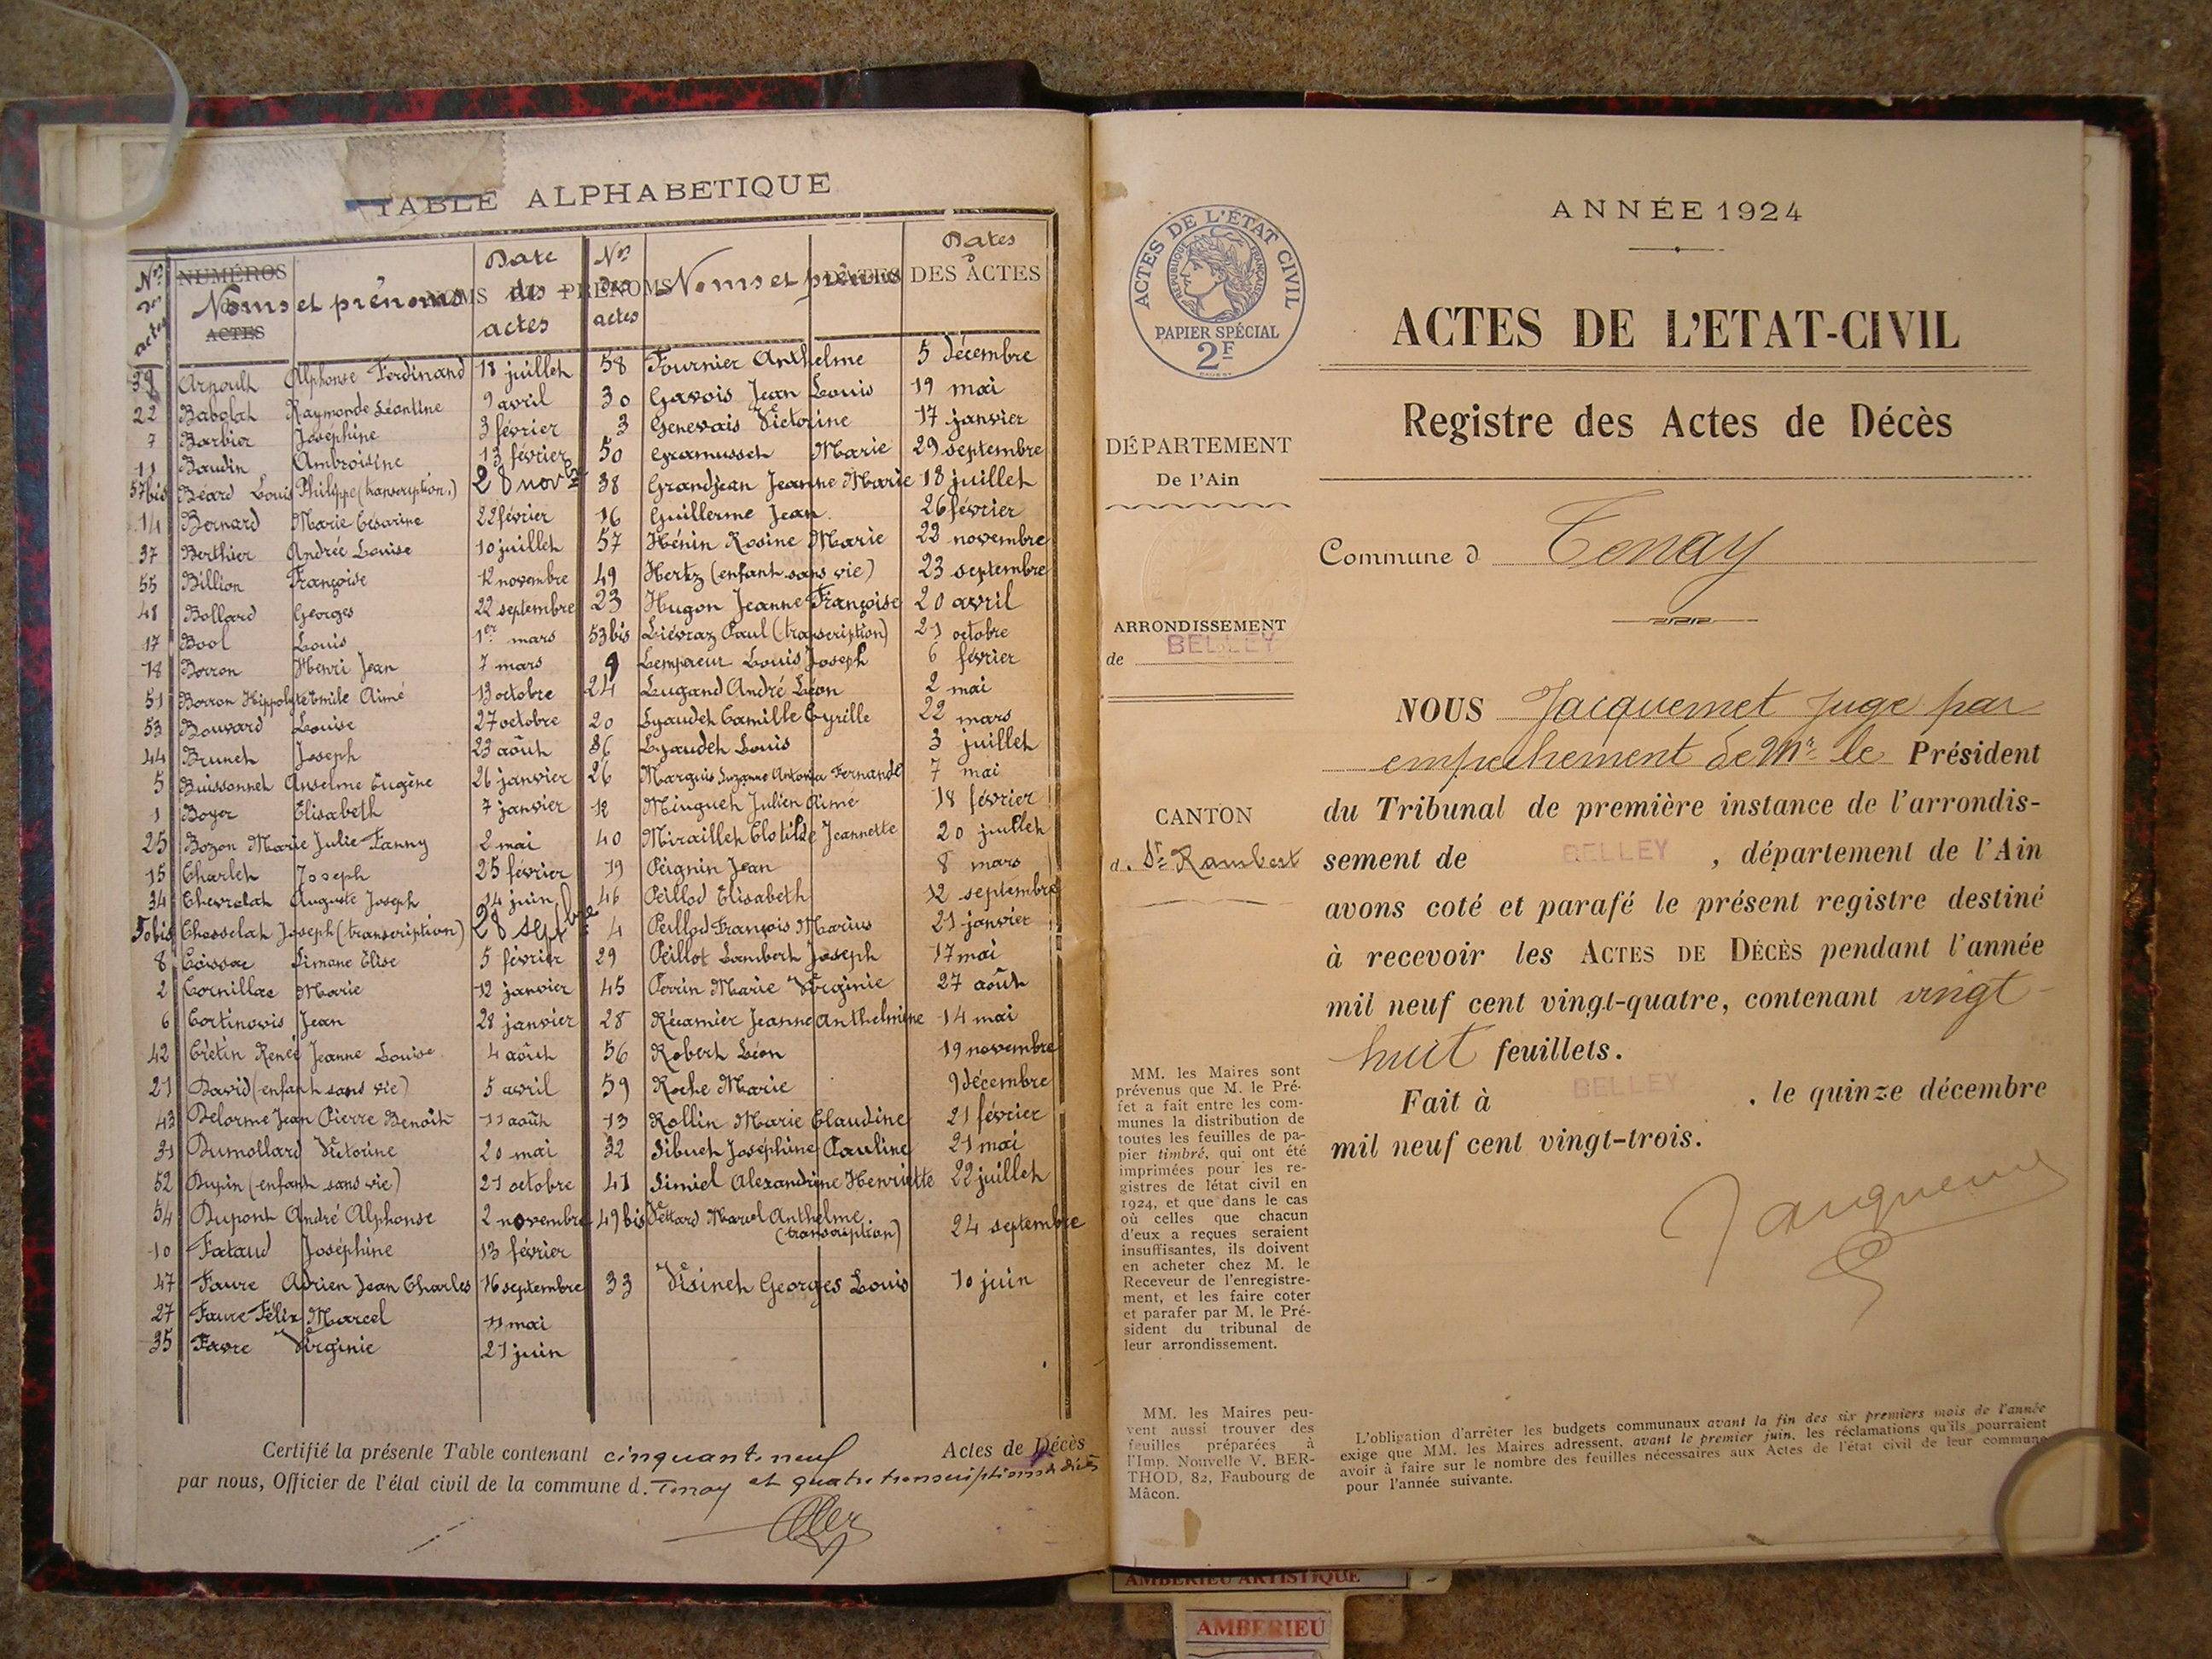 TABLE ALPHABETIQUE
Nos des actes
NUMÉROS
ACTES
Noms et prénoms
Date des actes
Nos des actes
NOMS
PRÉNOMS
Noms et prénoms
Dates
DES ACTES
39 Arpoult Alphonse Ferdinand 18 juillet
22 Babolat Raymonde Léontine 9 avril
7 Barbier Joséphine 3 février
11 Baudin Ambroisine 13 février
57bis Béard Louis Philippe (transcription) 28 novbre
14 Bernard Marie Césarine 22 février
37 Berthier Andrée Louise 10 juillet
55 Billion Françoise 12 novembre
48 Bollard Georges 22 septembre
17 Bool Louis 1er mars
18 Borron Henri Jean 7 mars
51 Borron Hippolyte Emile Aimé 13 octobre
53 Bouvard Louise 27 octobre
44 Brunet Joseph 23 août
5 Buissonnet Anselme Eugène 26 janvier
1 Boyer Elisabeth 7 janvier
25 Bozon Marie Julie Fanny 2 mai
15 Charlet Joseph 25 février
34 Chevrolat Auguste Joseph 14 juin
50bis Chosselat Joseph (transcription) 28 septbre
8 Coissac Simone Elise 5 février
2 Cornillac Marie 12 janvier
6 Cortinovis Jean 28 janvier
42 Crétin Renée Jeanne Louise 4 août
21 David (enfant sans vie) 5 avril
43 Delorme Jean Pierre Benoît 11 août
31 Dumollard Victorine 20 mai
52 Dupin (enfant sans vie) 21 octobre
54 Dupont André Alphonse 2 novembre
10 Fataud Joséphine 13 février
47 Faure Adrien Jean Charles 16 septembre
27 Faure Félix Marcel 11 mai
35 Favre Virginie 21 juin
58 Fournier Anthelme 5 décembre
30 Gavois Jean Louis 19 mai
3 Genevais Victorine 17 janvier
50 Gramusset Marie 29 septembre
38 Grandjean Jeanne Marie 18 juillet
16 Guillerme Jean 26 février
57 Hénin Rosine Marie 22 novembre
49 Hertz (enfant sans vie) 23 septembre
23 Hugon Jeanne Françoise 20 avril
53bis Liévraz Paul (transcription) 21 octobre
9 Lempereur Louis Joseph 6 février
24 Lugand André Léon 2 mai
20 Lyaudet Camille Cyrille 22 mars
36 Lyaudet Louis 3 juillet
26 Marquis Suzanne Antonia Fernande 7 mai
12 Minguet Julien Aimé 18 février
40 Miraillet Clotilde Jeannette 20 juillet
19 Peignin Jean 8 mars
46 Peillod Elisabeth 12 septembre
4 Peillod François Marius 21 janvier
29 Peillot Lambert Joseph 17 mai
45 Perrin Marie Virginie 27 août
28 Récamier Jeanne Anthelmine 14 mai
56 Robert Léon 19 novembre
59 Roche Marie 9 décembre
13 Rollin Marie Claudine 21 février
32 Sibuet Joséphine Pauline 21 mai
41 Simiel Alexandrine Henriette 22 juillet
49bis Vettard Marcel Anthelme (transcription) 24 septembre
33 Visinet Georges Louis 10 juin
Certifié la présente Table contenant cinquante neuf Actes de Décès
par nous, Officier de l'état civil de la commune d. Tenay et quatre transcriptions de décès
ANNÉE 1924
ACTES DE L'ÉTAT CIVIL
RÉPUBLIQUE FRANÇAISE
PAPIER SPÉCIAL
2F
ACTES DE L'ETAT-CIVIL
Registre des Actes de Décès
DÉPARTEMENT
De l'Ain
Commune d Tenay
ARRONDISSEMENT
de BELLEY
CANTON
d. St Rambert
NOUS Jacquemet juge par
empêchement de Mr le Président
du Tribunal de première instance de l'arrondis-
sement de BELLEY, département de l'Ain
avons coté et parafé le présent registre destiné
à recevoir les ACTES DE DÉCÈS pendant l'année
mil neuf cent vingt-quatre, contenant vingt-
huit feuillets.
Fait à BELLEY, le quinze décembre
mil neuf cent vingt-trois.
MM. les Maires sont
prévenus que M. le Pré-
fet a fait entre les com-
munes la distribution de
toutes les feuilles de pa-
pier timbré, qui ont été
imprimées pour les re-
gistres de létat civil en
1924, et que dans le cas
où celles que chacun
d'eux a reçues seraient
insuffisantes, ils doivent
en acheter chez M. le
Receveur de l'enregistre-
ment, et les faire coter
et parafer par M. le Pré-
sident du tribunal de
leur arrondissement.
MM. les Maires peu-
vent aussi trouver des
feuilles préparées à
l'Imp. Nouvelle V. BER-
THOD, 82, Faubourg de
Mâcon.
L'obligation d'arrêter les budgets communaux avant la fin des six premiers mois de l'année
exige que MM. les Maires adressent, avant le premier juin, les réclamations qu'ils pourraient
avoir à faire sur le nombre des feuilles nécessaires aux Actes de l'état civil de leur commune
pour l'année suivante.
AMBERIEU ARTISTIQUE
AMBERIEU